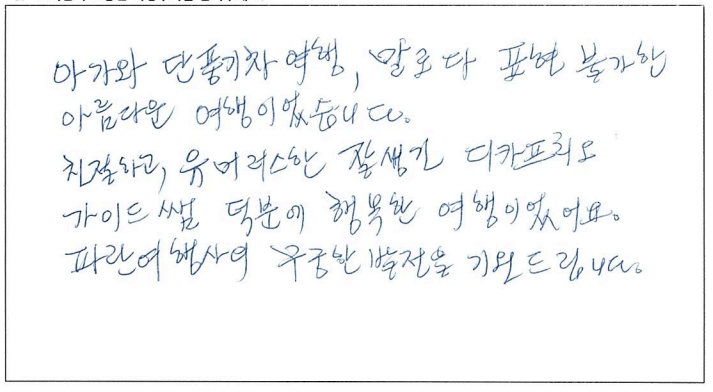 아가와 단풍기차 여행, 말로다 표현 불가한
아름다운 여행이었습니다.
친절하고, 유머러스한 잘생긴 디카프리오
가이드 쌤 덕분에 행복한 여행이었어요.
파란여행사의 무궁한 발전을 기원드립니다.